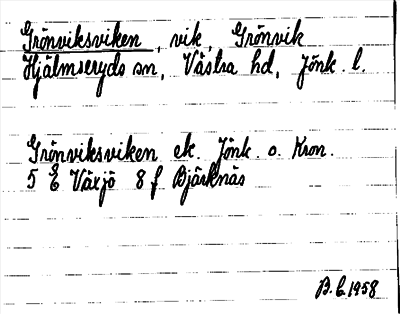 Grönviksviken, vik, Grönvik
Hjälmseryds sn, Västra hd, Jönk. l.
Grönviksviken ek. Jönk. o. Kron.
5 E Växjö 8 f Bjärknäs
B.E. 1958